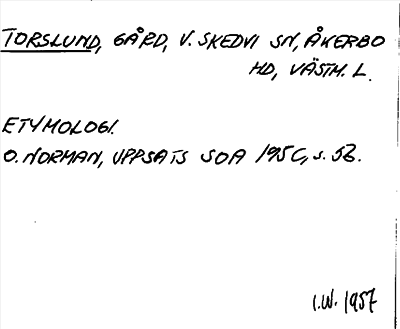 TORSLUND, GÅRD, V. SKEDVI SN, ÅKERBO
HD, VÄSTM. L.
ETYMOLOGI.
O. NORMAN, UPPSATS SOA 1950, s. 53.
I.W. 1957